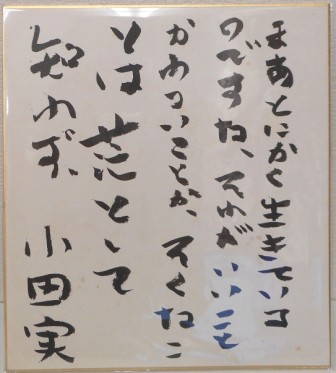 まあとにかく生きている
のですね、それがいいこと
かわるいことか、そんなこ
とは茫として
知れず、小田実